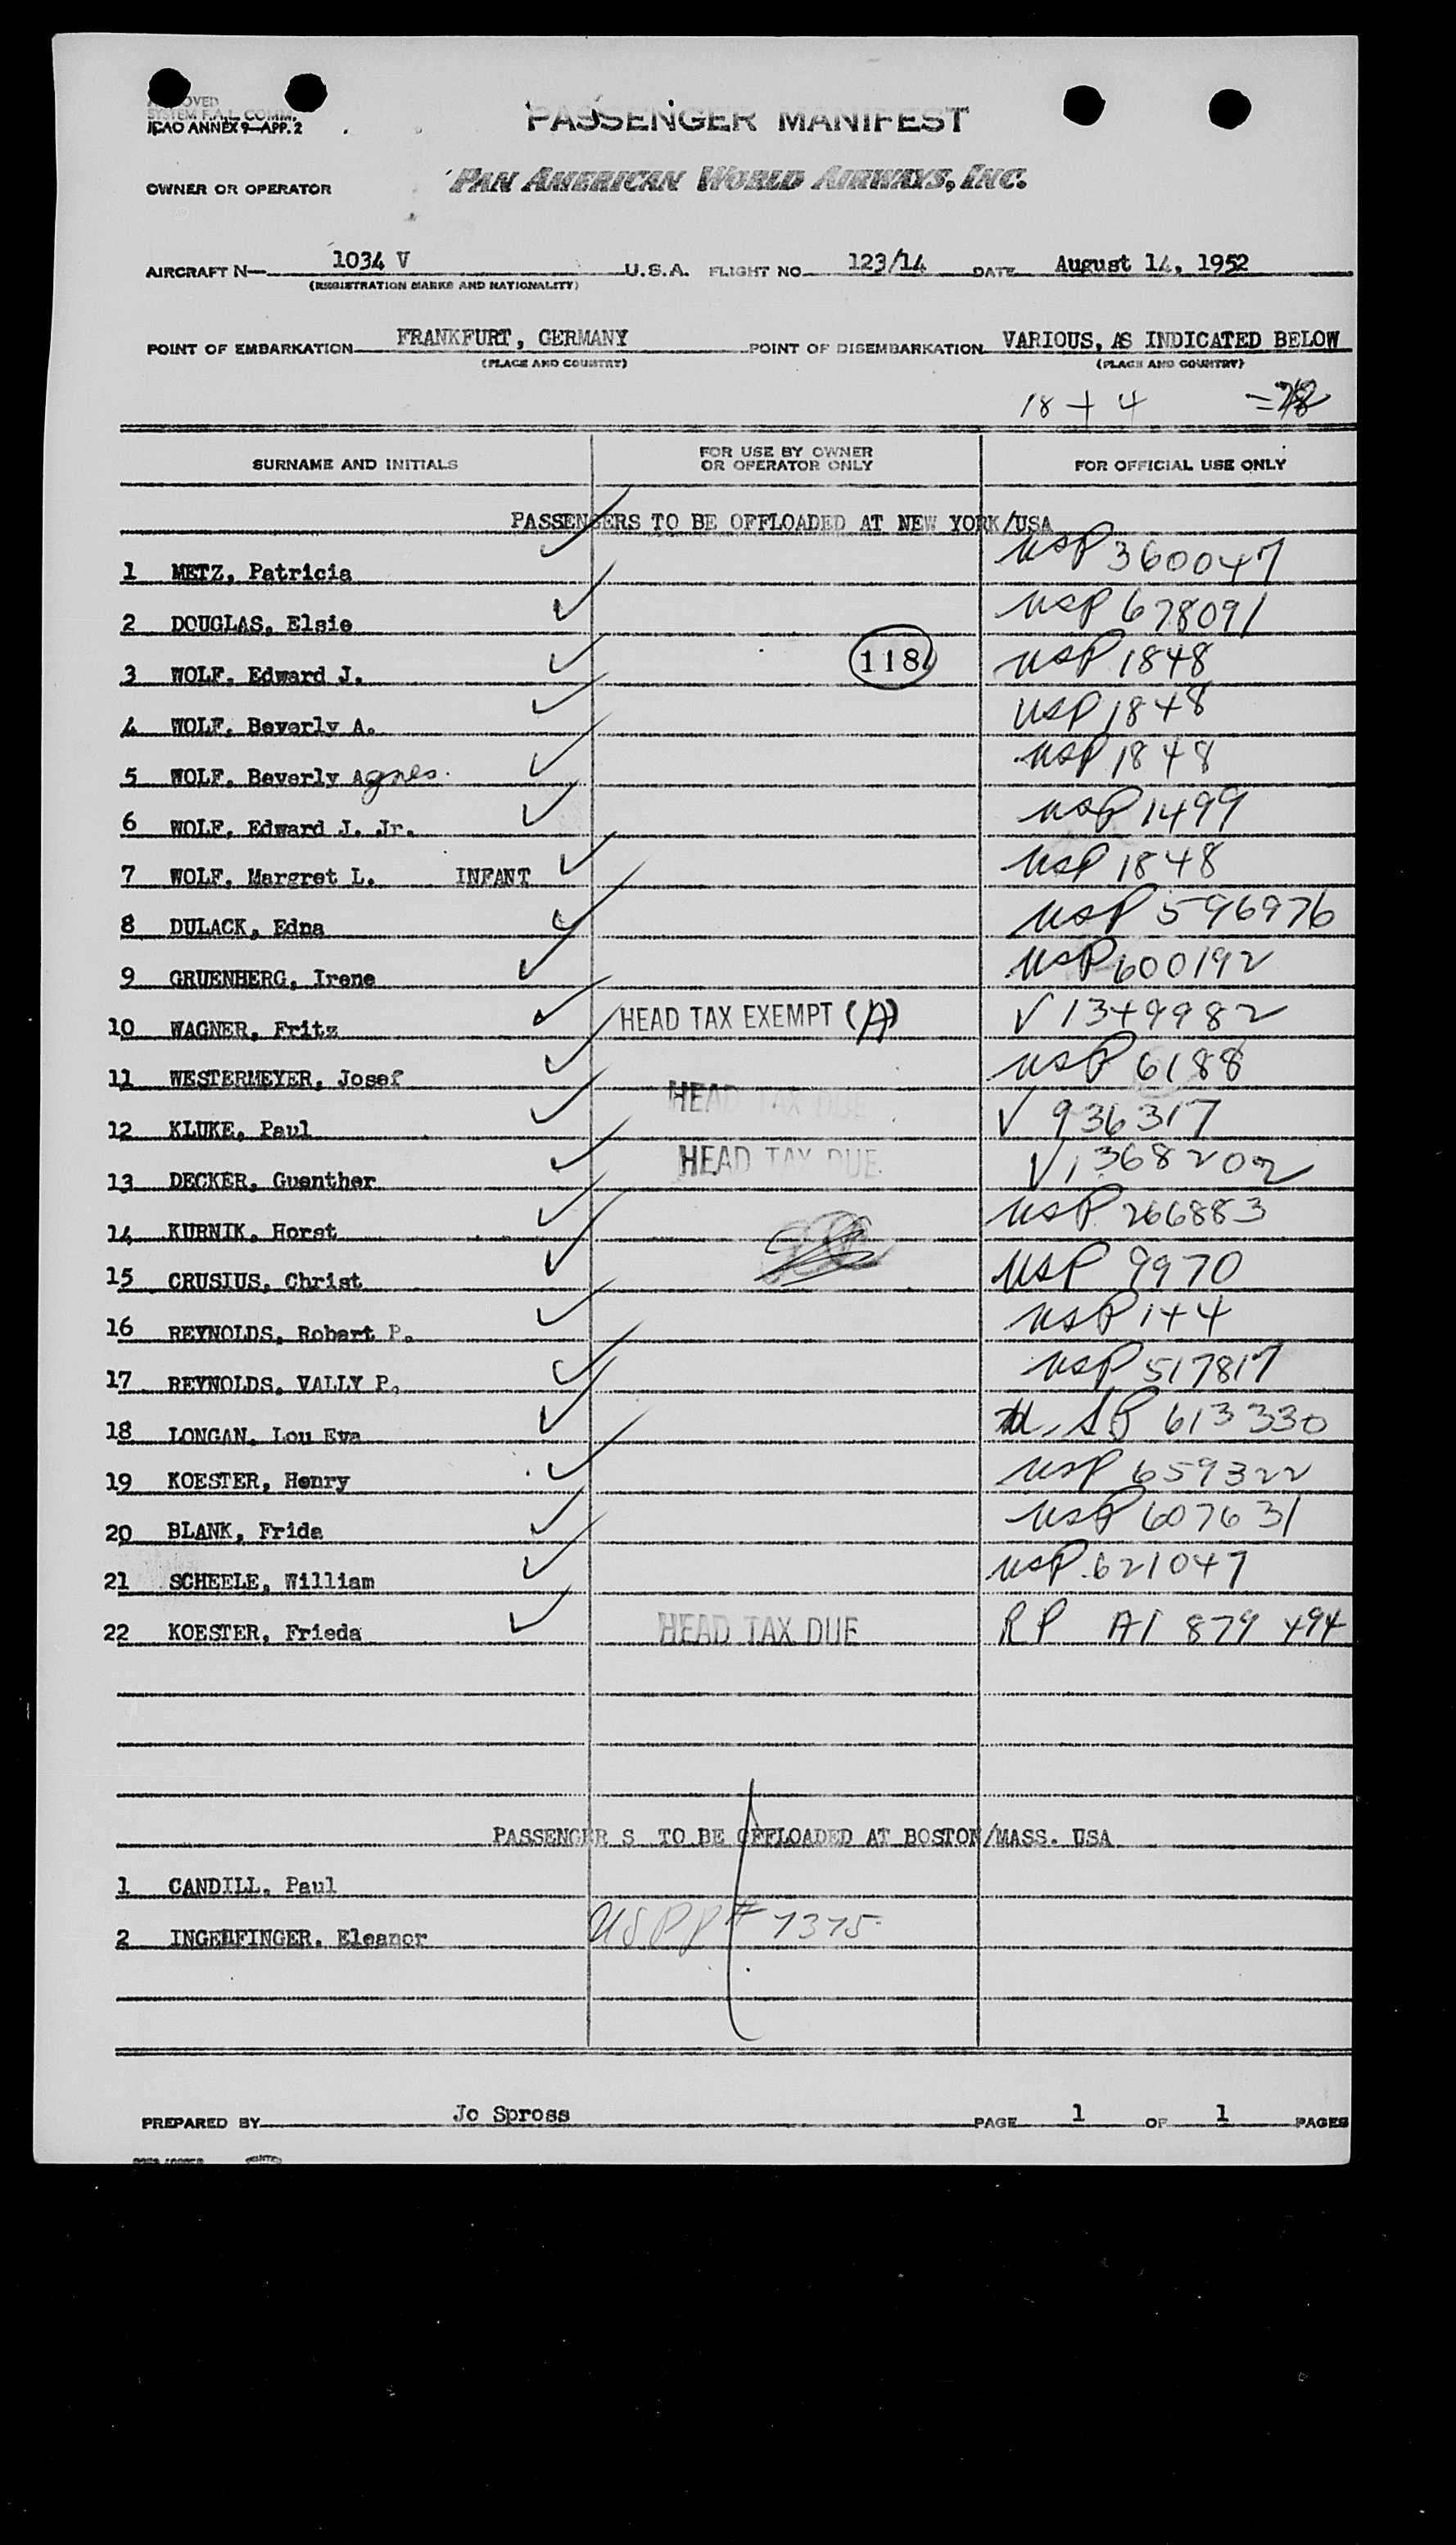 SYSTEM F.A.L. COMM.
ICAO ANNEX 9—APP. 2
PASSENGER MANIFEST
OWNER OR OPERATOR PAN AMERICAN WORLD AIRWAYS, INC.
AIRCRAFT N— 1034 V U.S.A. FLIGHT NO. 123/14 DATE August 14, 1952
(REGISTRATION MARKS AND NATIONALITY)
POINT OF EMBARKATION FRANKFURT, GERMANY POINT OF DISEMBARKATION VARIOUS, AS INDICATED BELOW
(PLACE AND COUNTRY) (PLACE AND COUNTRY)
18 + 4 =
SURNAME AND INITIALS FOR USE BY OWNER OR OPERATOR ONLY FOR OFFICIAL USE ONLY
PASSENGERS TO BE OFFLOADED AT NEW YORK/USA
1 METZ, Patricia USP 360047
2 DOUGLAS, Elsie USP 678091
3 WOLF, Edward J. 118 USP 1848
4 WOLF, Beverly A. USP 1848
5 WOLF, Beverly Agnes. USP 1848
6 WOLF, Edward J. Jr. USP 1499
7 WOLF, Margret L. INFANT USP 1848
8 DULACK, Edna USP 596976
9 GRUENBERG, Irene USP 600192
10 WAGNER, Fritz HEAD TAX EXEMPT (A) V 1349982
11 WESTERMEYER, Josef USP 6188
12 KLUKE, Paul HEAD TAX DUE V 936317
13 DECKER, Guenther HEAD TAX DUE. V 1368202
14 KURNIK, Horst USP 266883
15 CRUSIUS, Christ USP 9970
16 REYNOLDS, Robert P. USP 144
17 REYNOLDS, VALLY P. USP 517817
18 LONGAN, Lou Eva U.SP 613330
19 KOESTER, Henry USP 659322
20 BLANK, Frida USP 607631
21 SCHEELE, William USP 621047
22 KOESTER, Frieda HEAD TAX DUE RP A1 879 494
PASSENGER S TO BE OFFLOADED AT BOSTON/MASS. USA
1 CANDILL, Paul
2 INGELFINGER, Eleanor USPP# 7375
PREPARED BY Jo Spross PAGE 1 OF 1 PAGES